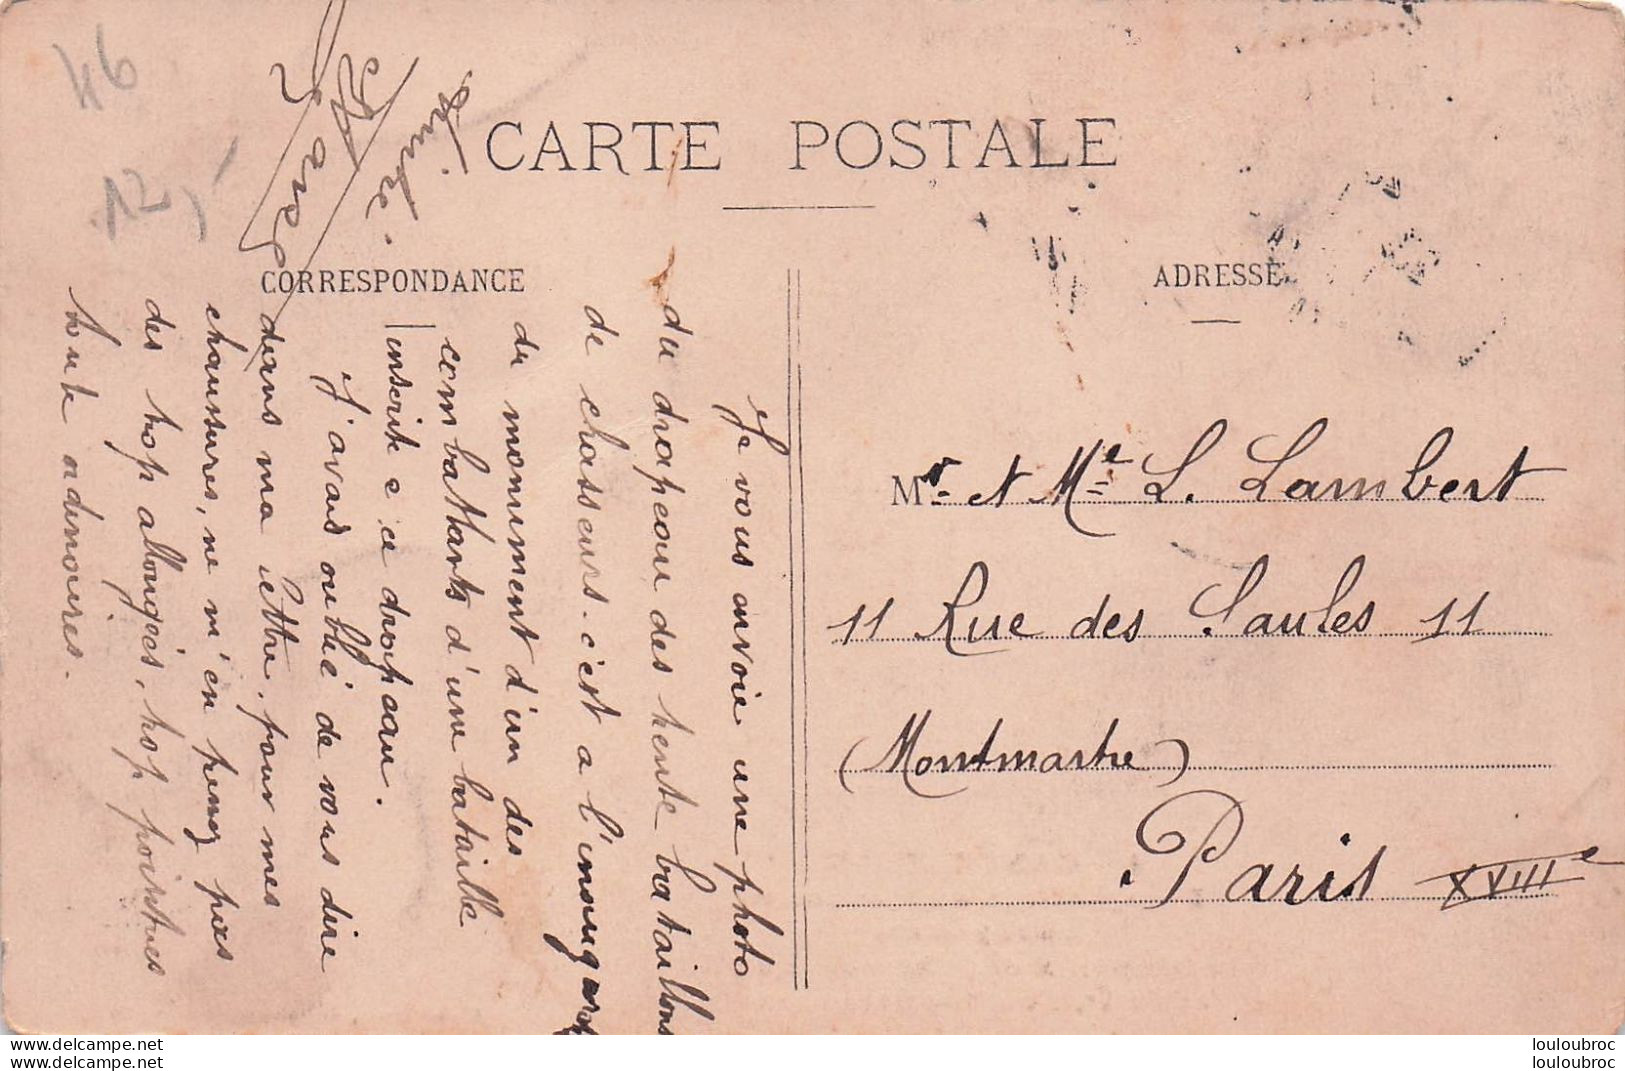 46
12,-
CARTE POSTALE
CORRESPONDANCE
ADRESSE
Je vous envoie une photo
du drapeau des trente bataillons
de chasseurs. c'est a l'
du monument d'un des
combattants d'une bataille
inscrite s ce drapeau.
J'avais oublié de vous dire
dans ma lettre, pour mes
chaussures, ne m'en prenez pas
des trop allongés, trop pointues
toute a dmoires.
Amitié.
Mr. et Me L. Lambert
11 Rue des Saules 11
(Montmartre)
Paris XVIIIe
louloubroc
louloubroc